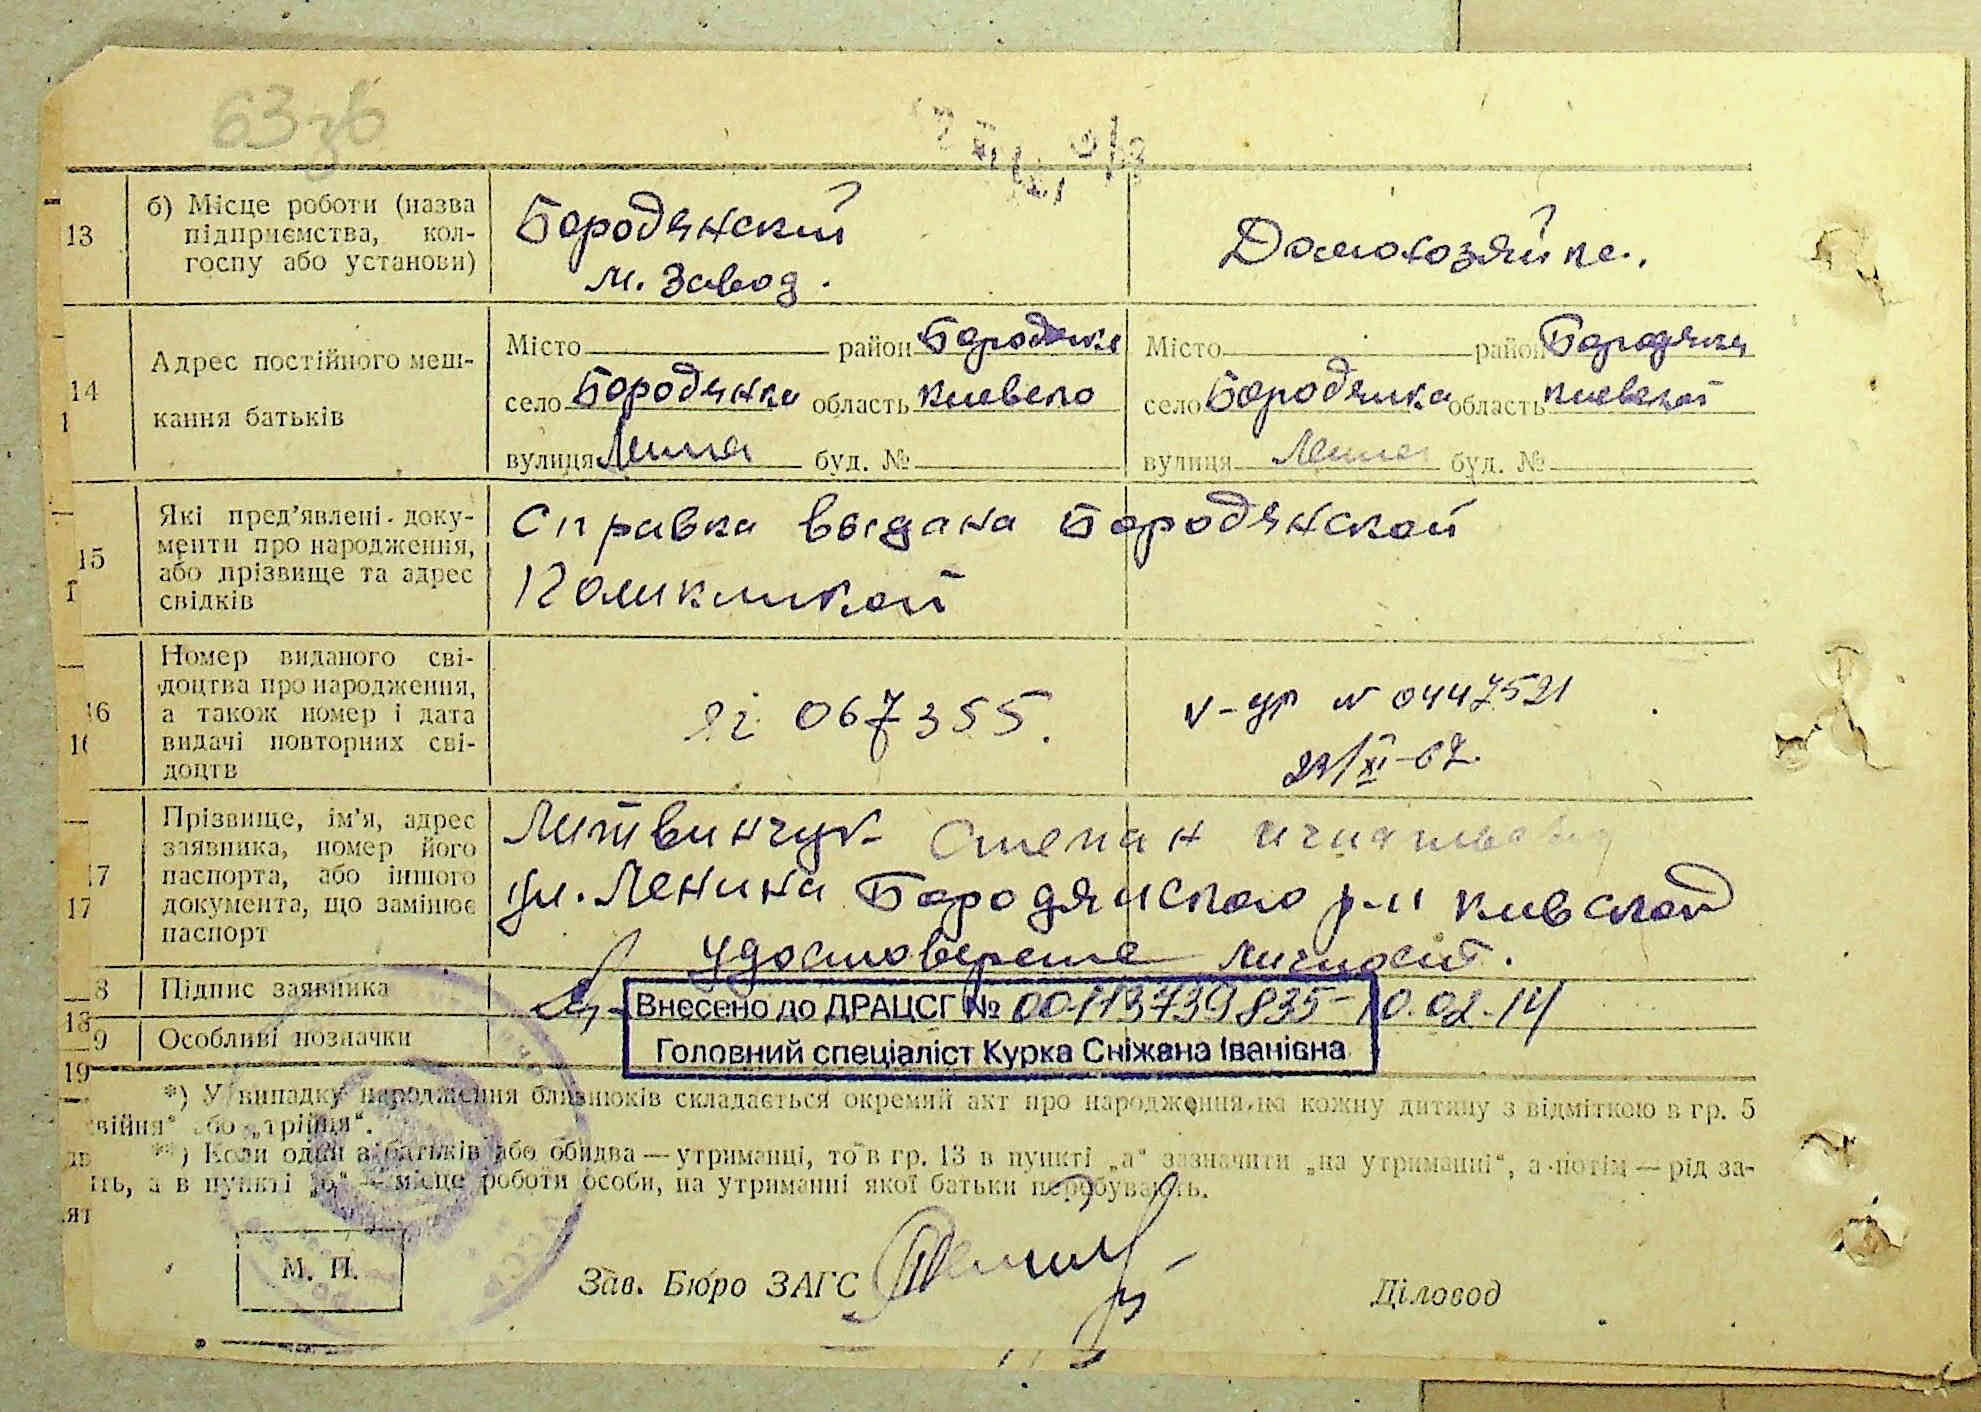 63зв
13
б) Місце роботи (назва
підприємства, кол-
госпу або установи)
Бородянский
м. завод.
Домохозяйка.
14
1
Адрес постійного меш-
кання батьків
Місто район Бородянка
село Бородянка область Киевско
вулиця Ленина буд. №
Місто район Бородянка
село Бородянка область Киевской
вулиця Ленина буд. №
15
1
Які пред'явлені доку-
менти про народження,
або прізвище та адрес
свідків
Справка выдана Бородянской
Поликликой
16
16
Номер виданого сві-
доцтва про народження,
а також номер і дата
видачі повторних сві-
доцтв
067355.
N 0447521
XI-62.
17
17
Прізвище, ім'я, адрес
заявника, номер його
паспорта, або іншого
документа, що замінює
паспорт
Литвинчук Степан
ул. Ленина Бородянского р-н Кивской
удостоверение личност.
18
18
Підпис заявника
19
19
Особливі позначки
Внесено до ДРАЦСГ № 00113739835 - 10.02.14
Головний спеціаліст Курка Сніжана Іванівна
*) У випадку народження близнюків складається окремий акт про народження на кожну дитину з відміткою в гр. 5
двійня" або „трійця".
**) Коли один з батьків або обидва — утриманці, то в гр. 13 в пункті „а" зазначити „на утриманні", а потім — рід за-
нять, а в пункті „б" — місце роботи особи, на утриманні якої батьки перебувають.
М. П.
Зав. Бюро ЗАГС
Діловод